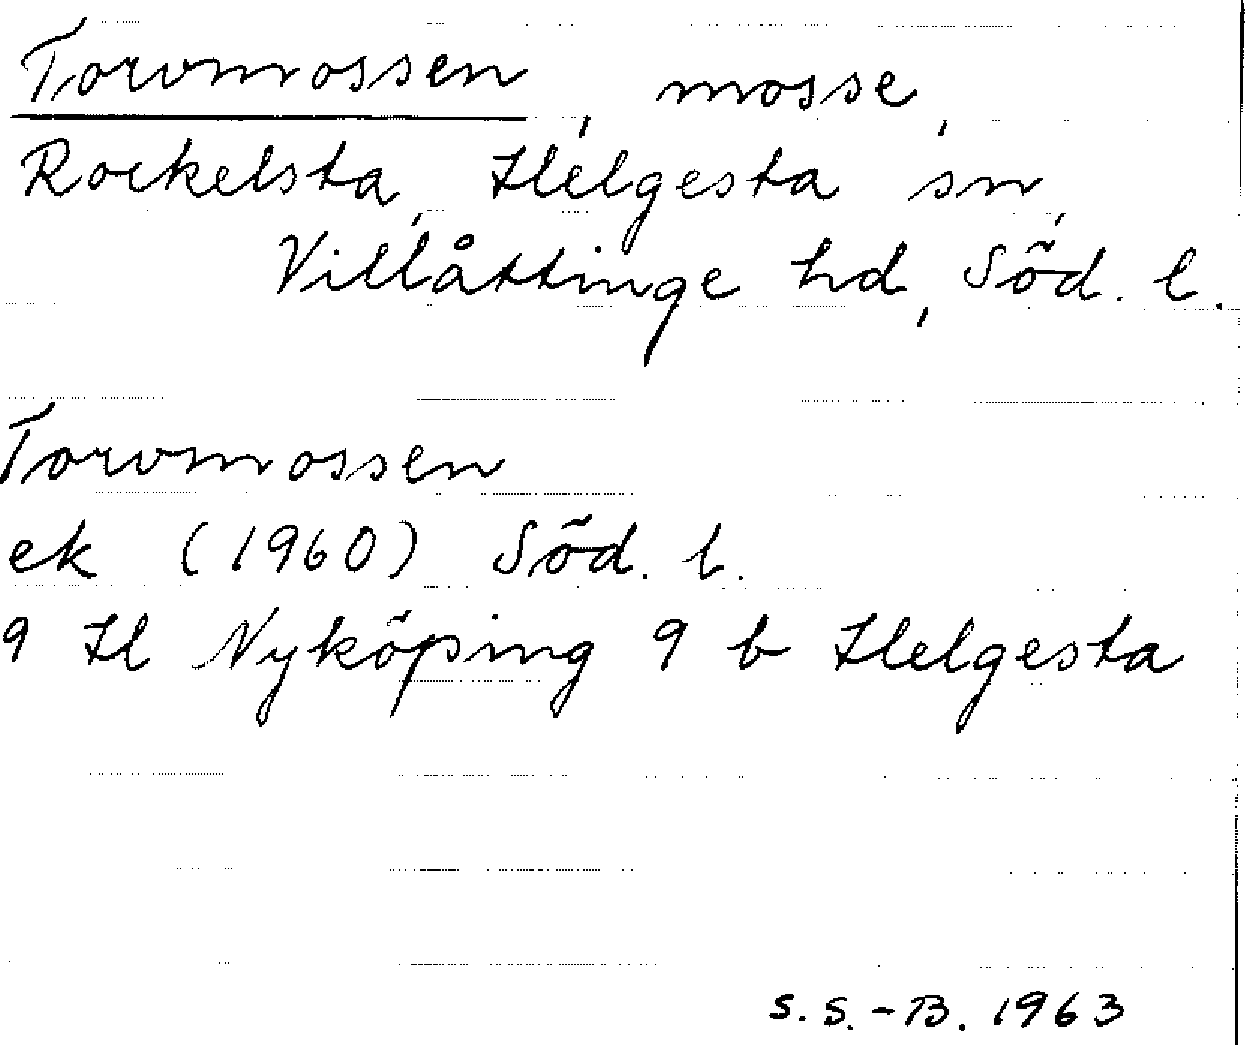 Torvmossen, mosse,
Rockelsta, Helgesta sn,
Villåttinge hd, Söd. l.
Torvmossen
ek (1960) Söd. l.
9 H Nyköping 9 b Helgesta
S.S.-B. 1963